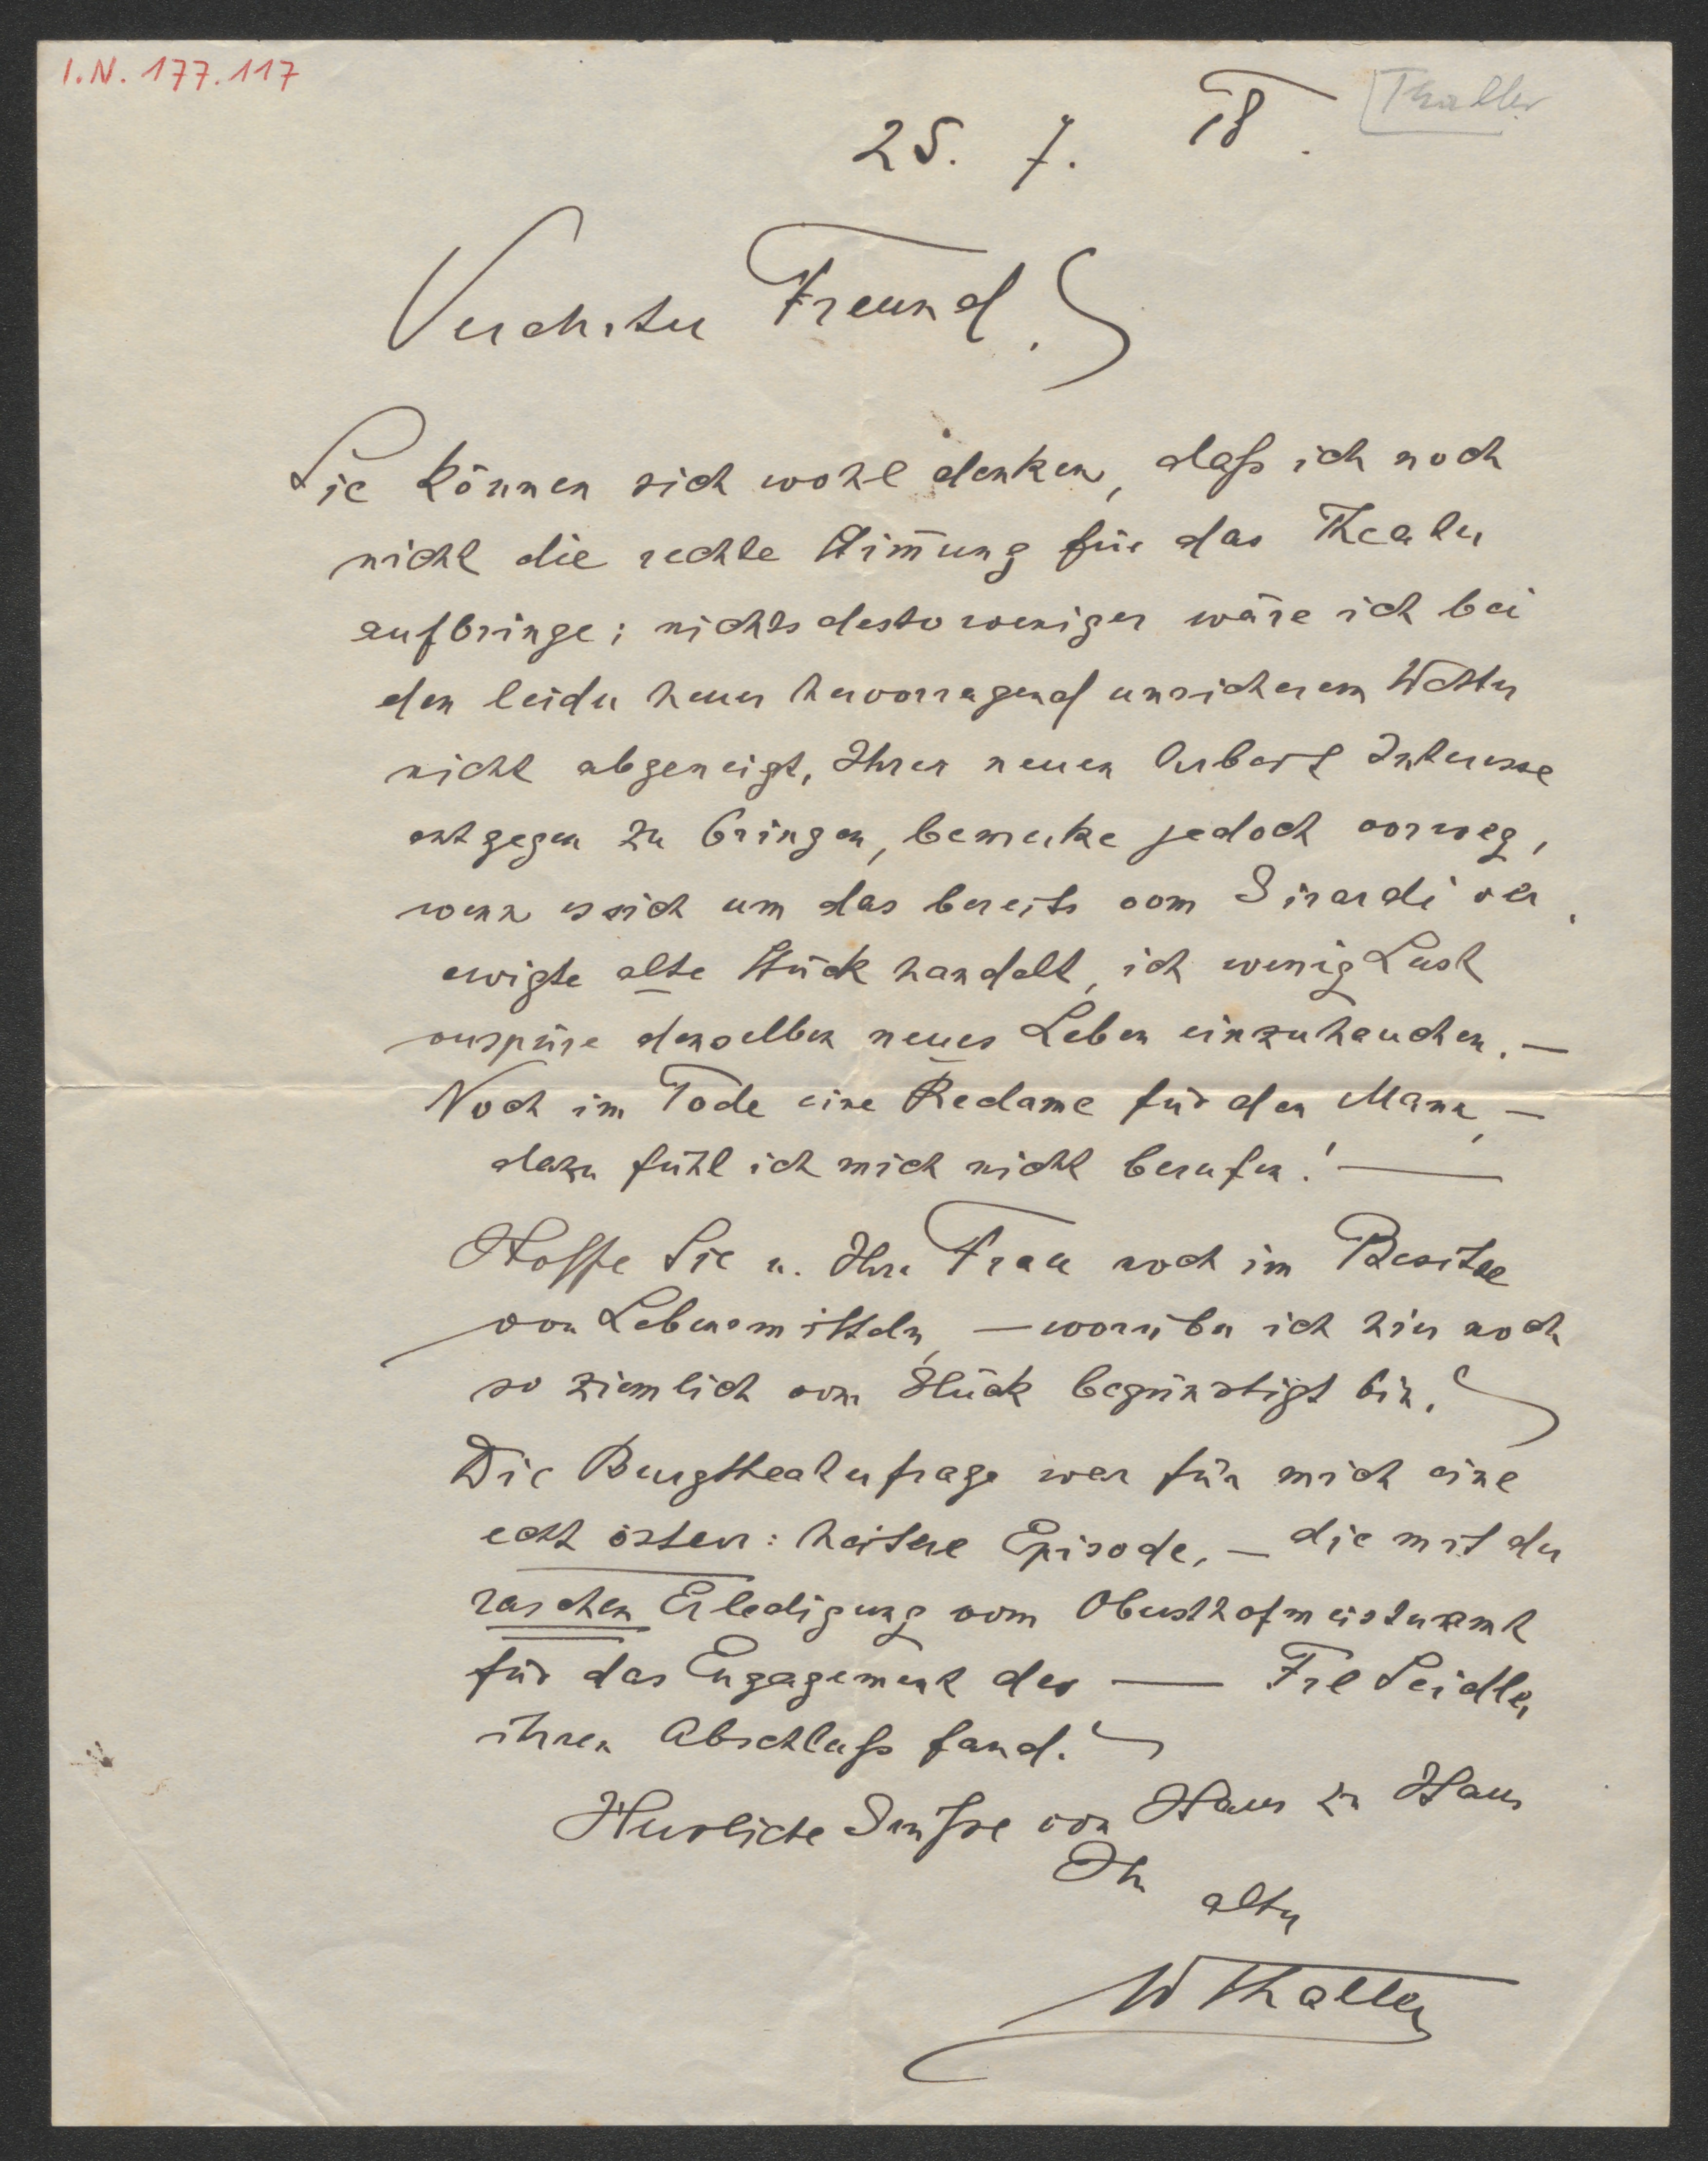 I.N. 177.117
[Thaller
25. 7. 18.
Verehrter Freund.
Sie können sich wohl denken, daß ich noch
nicht die rechte Stim̄ung für das Theater
aufbringe; nichts desto weniger wäre ich bei
den leider heuer hervorragend unsicherem Wetter
nicht abgeneigt, Ihrer neuen Arbeit Interesse
entgegen zu bringen, bemerke jedoch vorweg,
wenn es sich um das bereits vom Girardi ver
ewigte alte Stück handelt, ich wenig Lust
verspüre demselben neues Leben einzuhauchen. —
Noch im Tode eine Reclame für den Mann, —
dazu fühl ich mich nicht berufen! —
Hoffe Sie u. Ihre Frau noch im Besitze
von Lebensmitteln, — worüber ich hier noch
so ziemlich vom Glück begünstigt bin.
Die Burgtheaterfrage war für mich eine
echt österr: heitere Episode, — die mit der
raschen Erledigung vom Obersthofmeisteramt
für das Engagement des — Frl Seidler
ihren Abschluß fand.
Herzliche Grüße von Haus zu Haus
Ihr alter
W Thaller